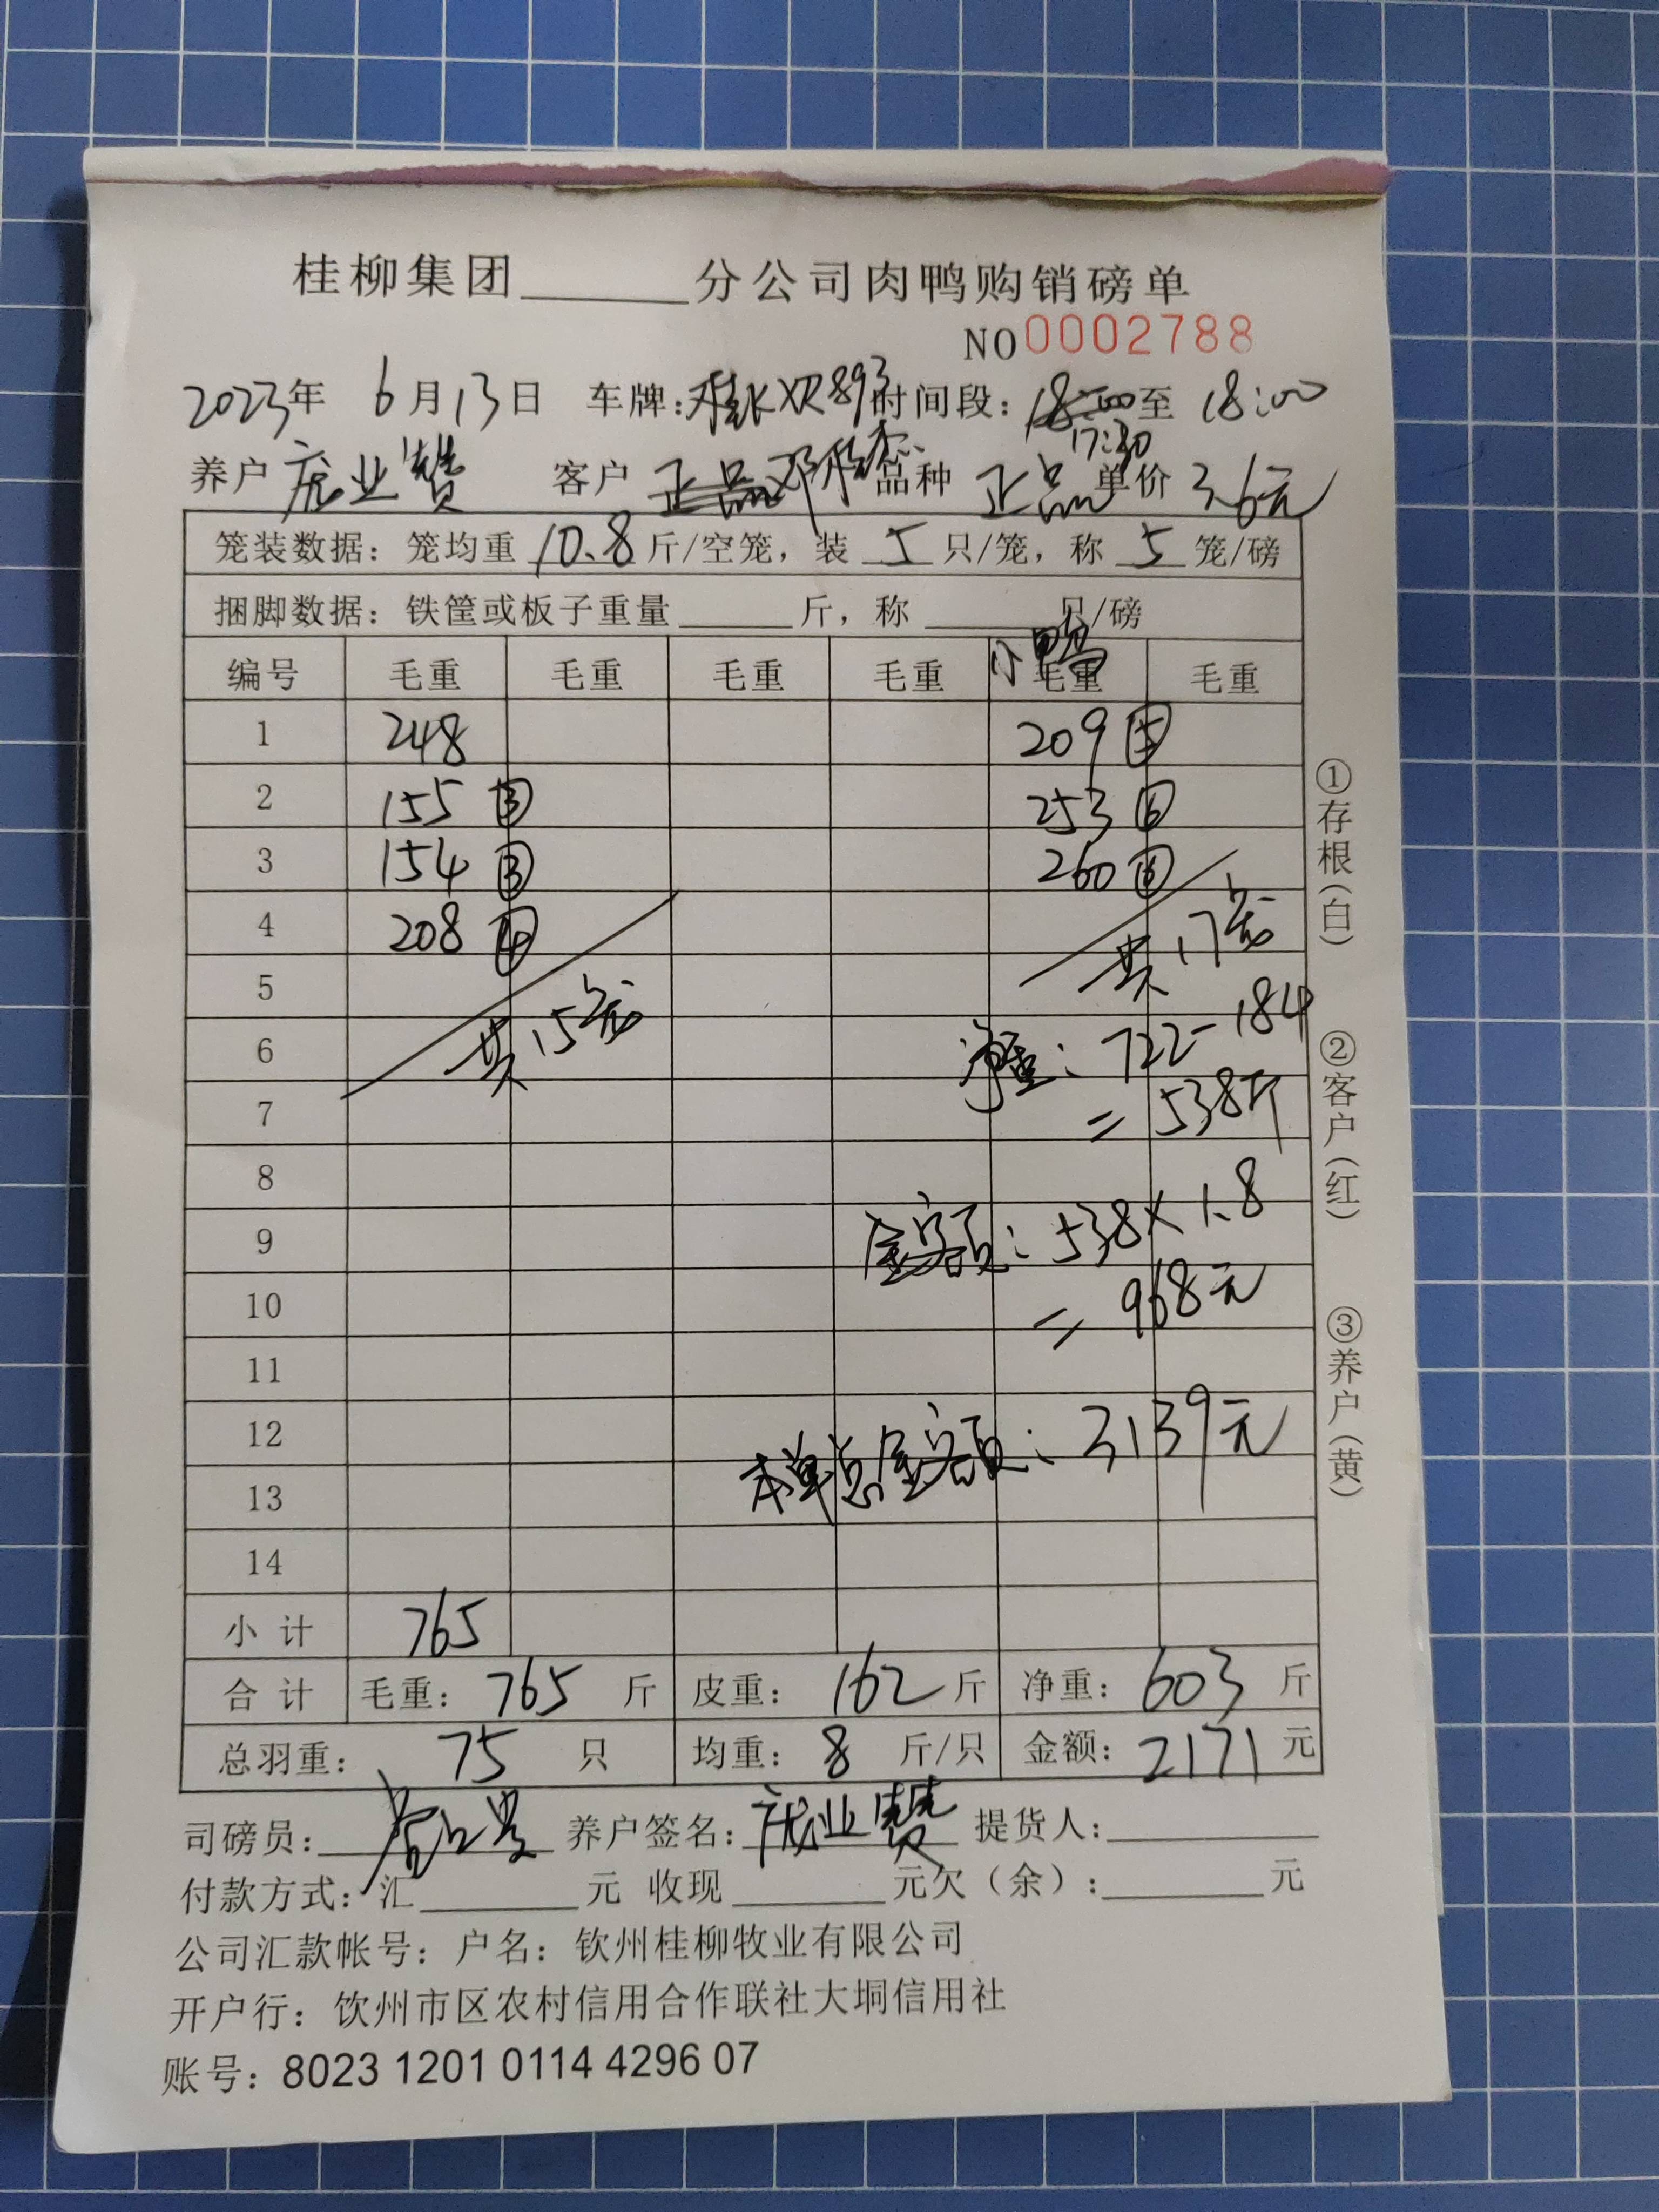 桂柳集团______分公司肉鸭购销磅单
NO 0002788
2023年 6月13日 车牌:桂KXR893 时间段: 18:00 17:30 至 18:00
养户 庞业赞 客户 正品 邓 品种 正品 单价 3.6元
笼装数据: 笼均重 10.8 斤/空笼, 装 5 只/笼, 称 5 笼/磅
捆脚数据: 铁筐或板子重量______斤, 称______只/磅
小鸭
编号 毛重 毛重 毛重 毛重 毛重 毛重
1 248 209 ⑤
2 155 ③ 253 ⑥
3 154 ③ 260 ⑥
4 208 ④ 共17笼
5 共15笼
6 净重: 722-184
7 =538斤
8
9 金额: 538×1.8
10 =968元
11
12 本单总金额: 3139元
13
14
小 计 765
合 计 毛重: 765 斤 皮重: 162 斤 净重: 603 斤
总羽重: 75 只 均重: 8 斤/只 金额: 2171 元
司磅员: 养户签名: 庞业赞 提货人:
付款方式: 汇______元 收现______元欠(余):______元
公司汇款帐号: 户名: 钦州桂柳牧业有限公司
开户行: 饮州市区农村信用合作联社大垌信用社
账号: 8023 1201 0114 4296 07
①存根(白)
②客户(红)
③养户(黄)